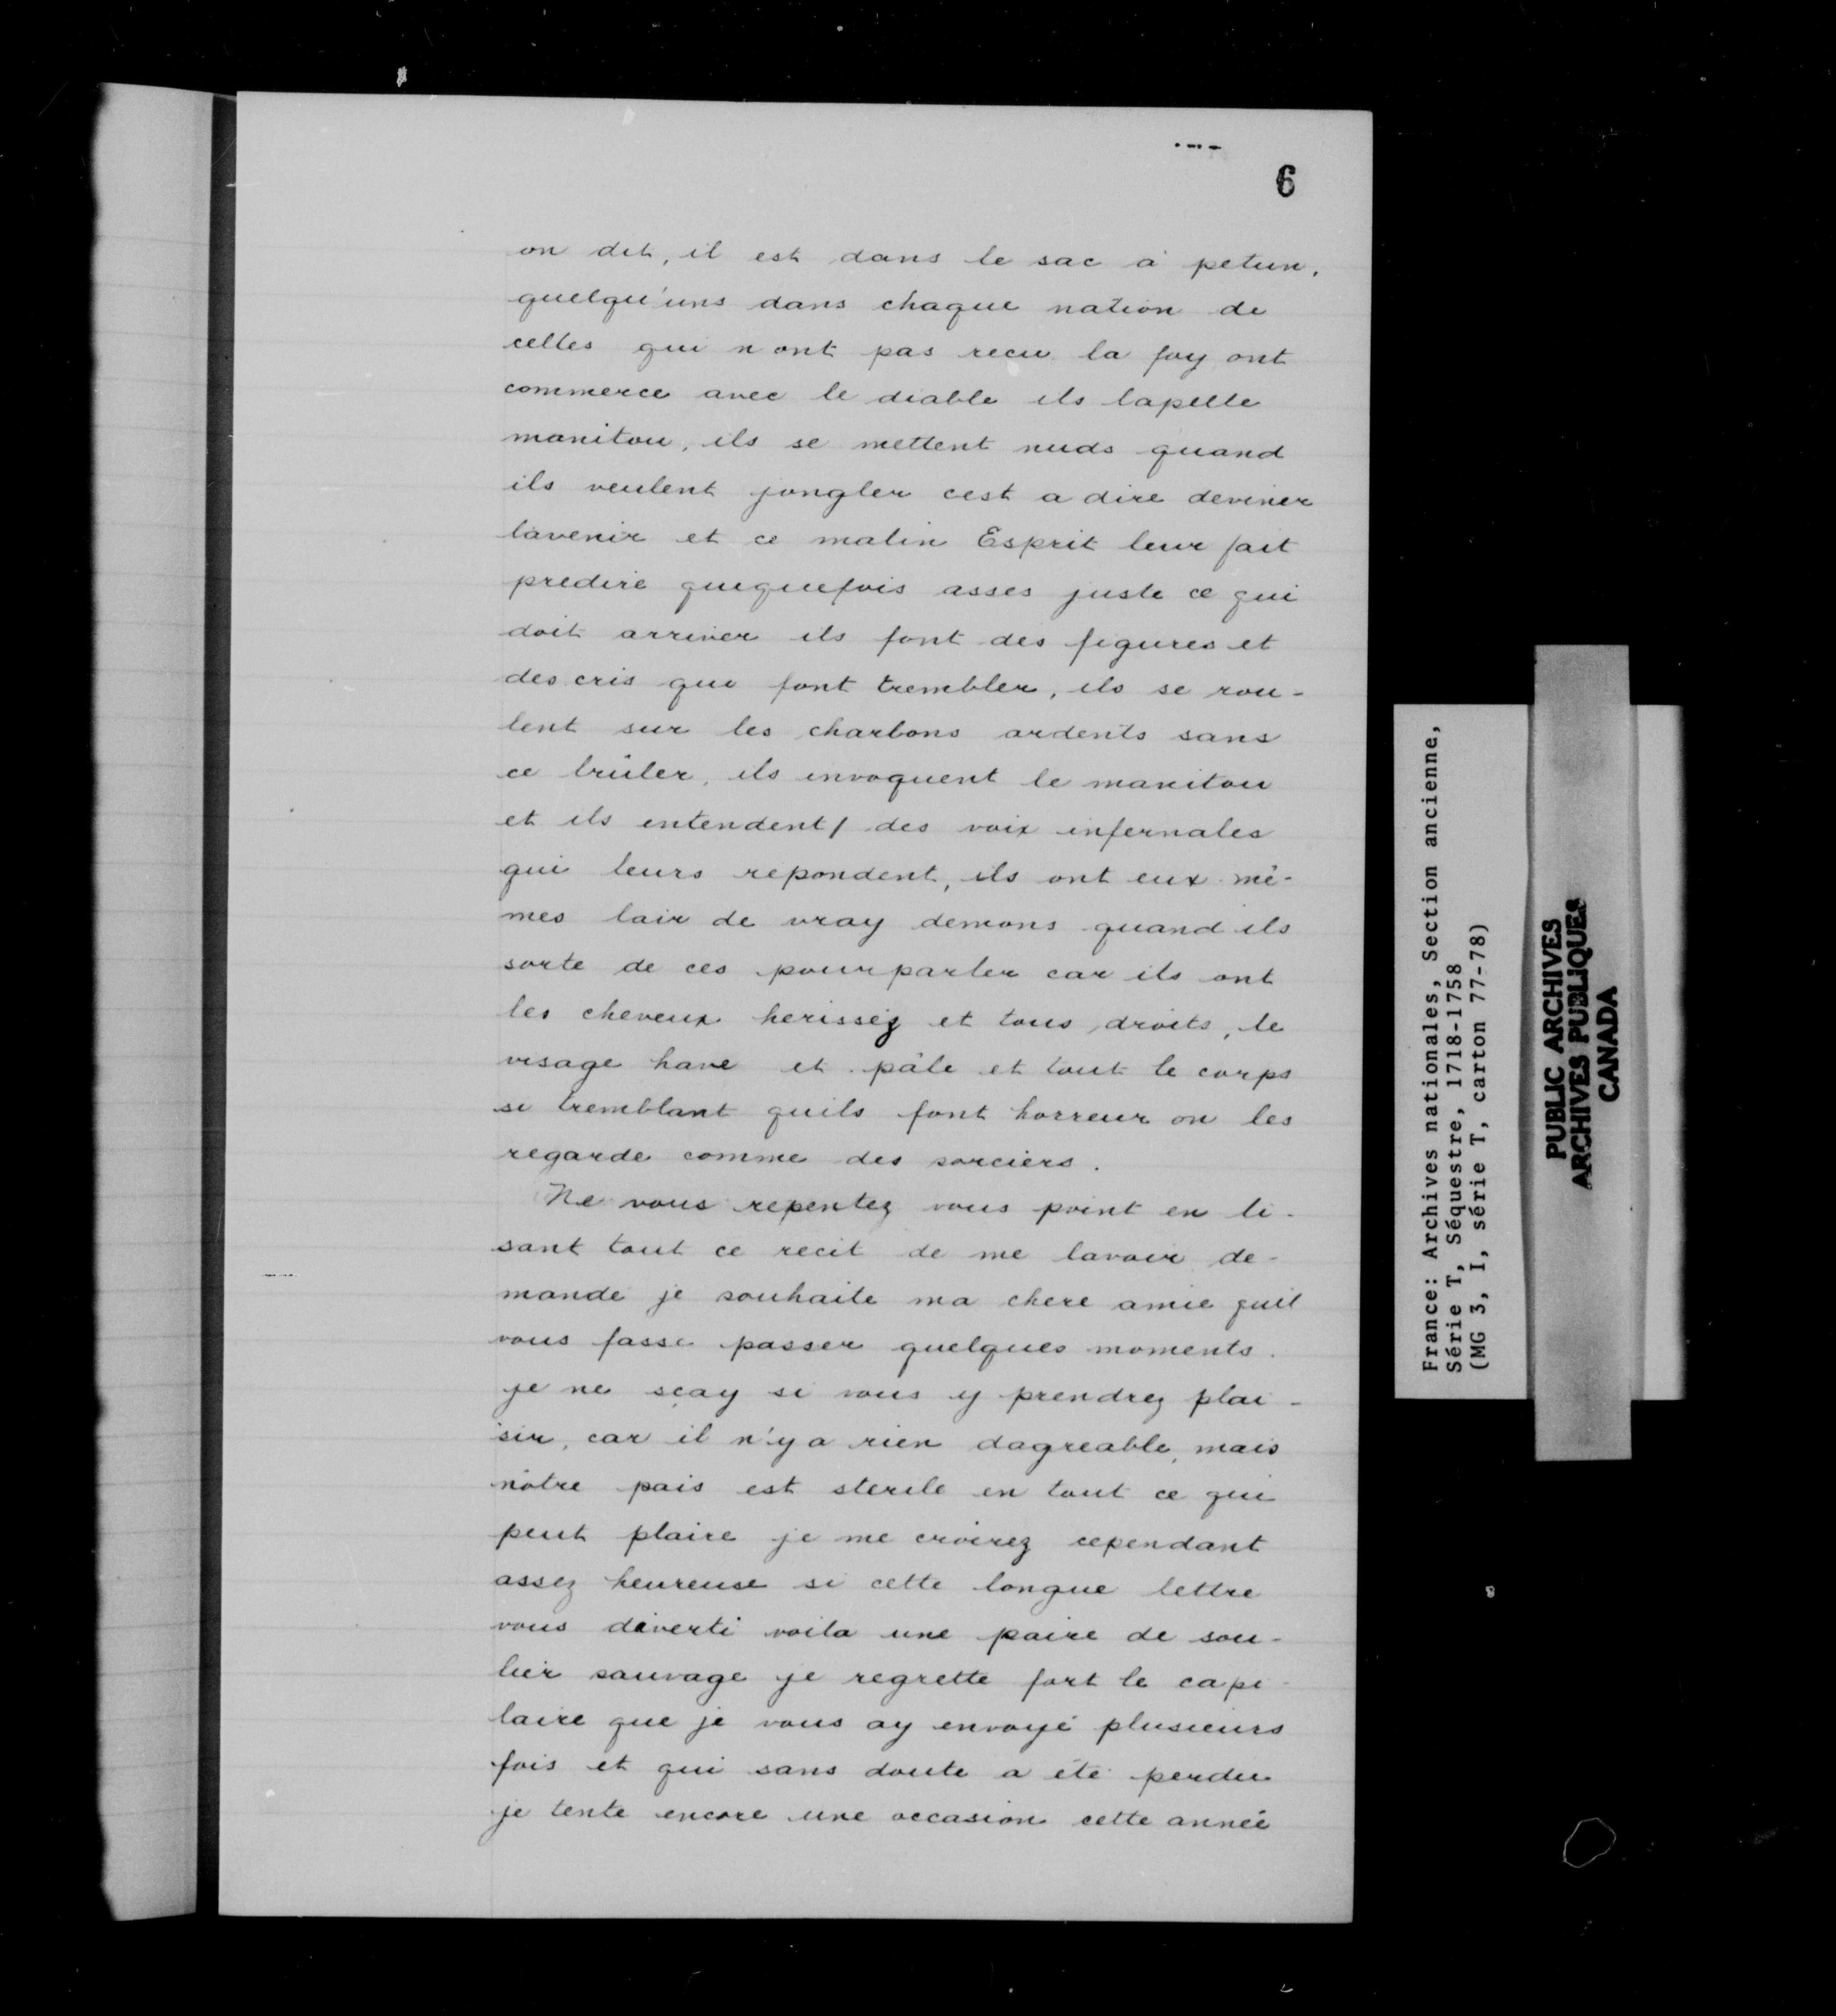 6
on dit, il est dans le sac à petun,
quelqu'uns dans chaque nation de
celles qui n ont pas recu la foy ont
commerce avec le diable ils lapelle
manitou, ils se mettent nuds quand
ils veulent jongler cest a dire deviner
lavenir et ce malin Esprit leur fait
predire quequefois asses juste ce qui
doit arriver ils font des figures et
des cris qui font trembler, ils se rou-
lent sur les charbons ardents sans
ce brûler, ils invoquent le manitou
et ils entendent/ des voix infernales
qui leurs repondent, ils ont eux mê-
mes lair de vray demons quand ils
sorte de ces pourparler car ils ont
les cheveux herissez et tous droits, le
visage have et pâle et tout le corps
si tremblant quils font horreur on les
regarde comme des sorciers.
Ne vous repentez vous point en li-
sant tout ce recit de me lavoir de-
mandé je souhaite ma chere amie quil
vous fasse passer quelques moments.
je ne sçay si vous y prendrez plai-
sir, car il n'y a rien dagreable, mais
nôtre pais est sterile en tout ce qui
peut plaire je me croirez cependant
assez heureuse si cette longue lettre
vous diverti voila une paire de sou-
lier sauvage je regrette fort le capi-
laire que je vous ay envoyé plusieurs
fois et qui sans doute a été perdu
je tente encore une occasion cette année
France: Archives nationales, Section ancienne,
Série T, Séquestre, 1718-1758
(MG 3, I, série T, carton 77-78)
PUBLIC ARCHIVES
ARCHIVES PUBLIQUES
CANADA